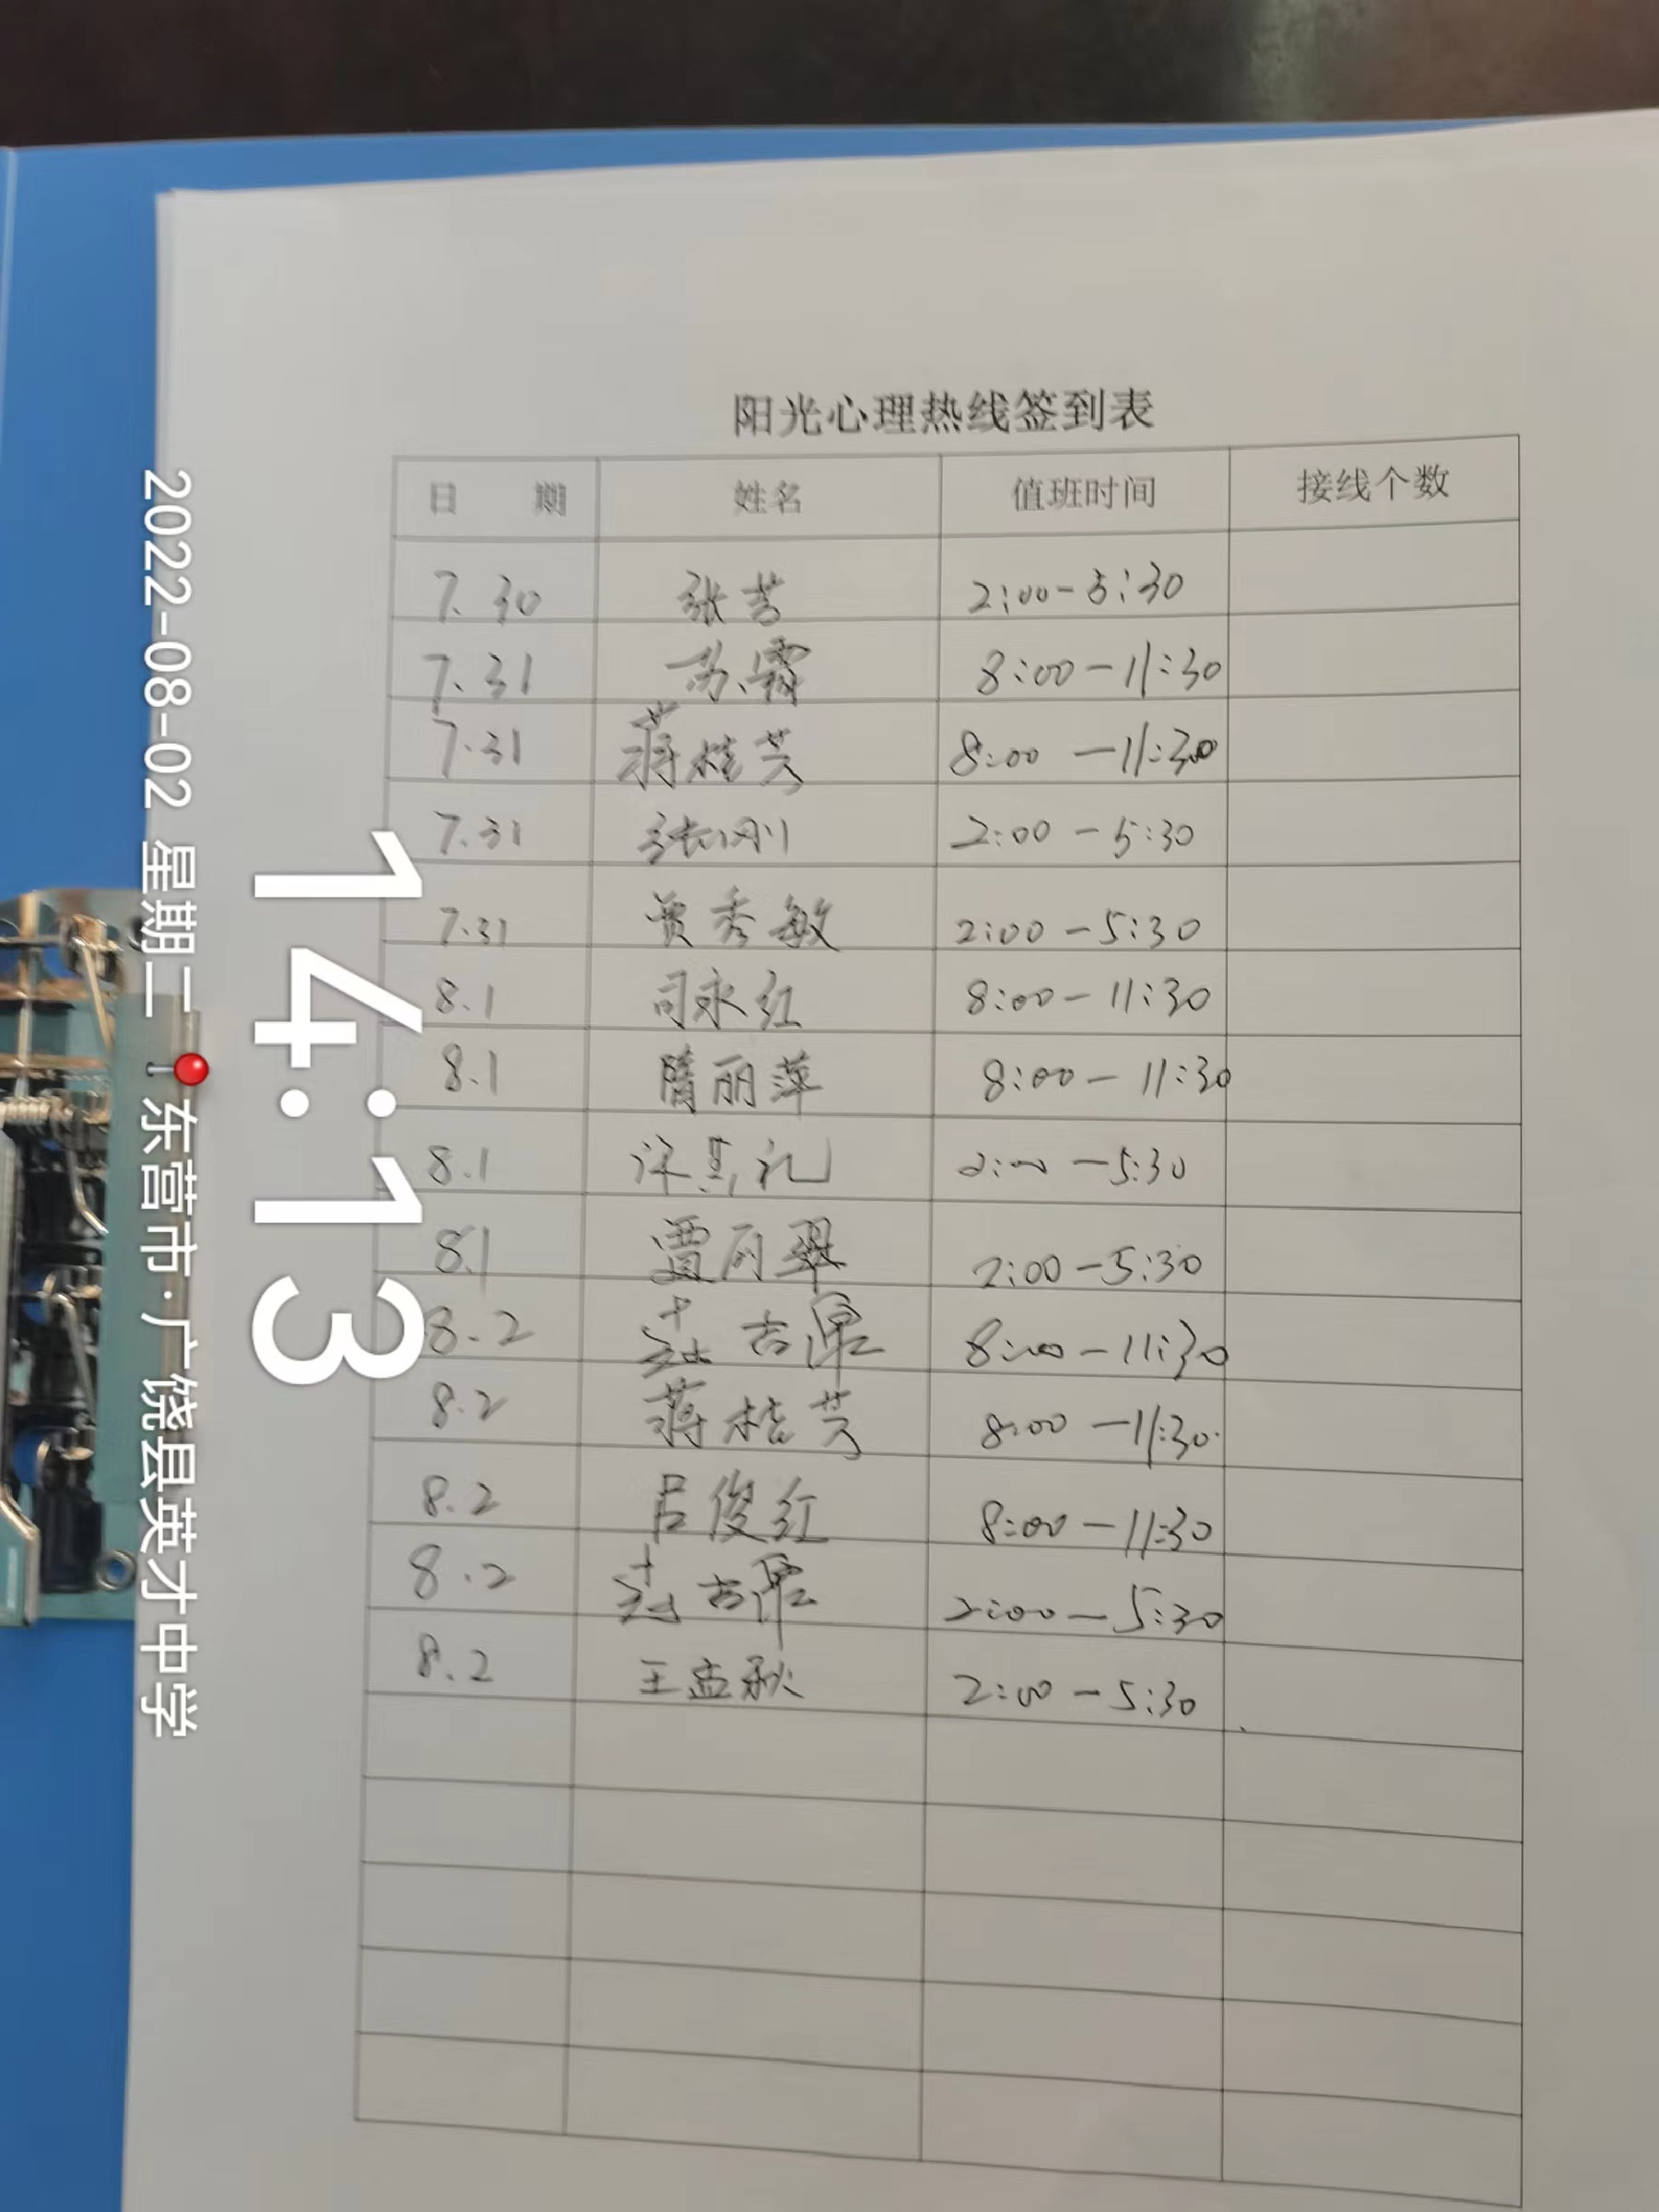 阳光心理热线签到表
日 期 姓名 值班时间 接线个数
7.30 张芳 2:00-5:30
7.31 苏霞 8:00-11:30
7.31 蒋桂芳 8:00-11:30
7.31 张刚 2:00-5:30
7.31 贾秀敏 2:00-5:30
8.1 司永红 8:00-11:30
8.1 隋丽萍 8:00-11:30
8.1 礼 2:00-5:30
8.1 贾丽翠 2:00-5:30
8.2 8:00-11:30
8.2 蒋桂芳 8:00-11:30
8.2 吕俊红 8:00-11:30
8.2 2:00-5:30
8.2 王孟秋 2:00-5:30
14:13
2022-08-02 星期二 东营市·广饶县英才中学